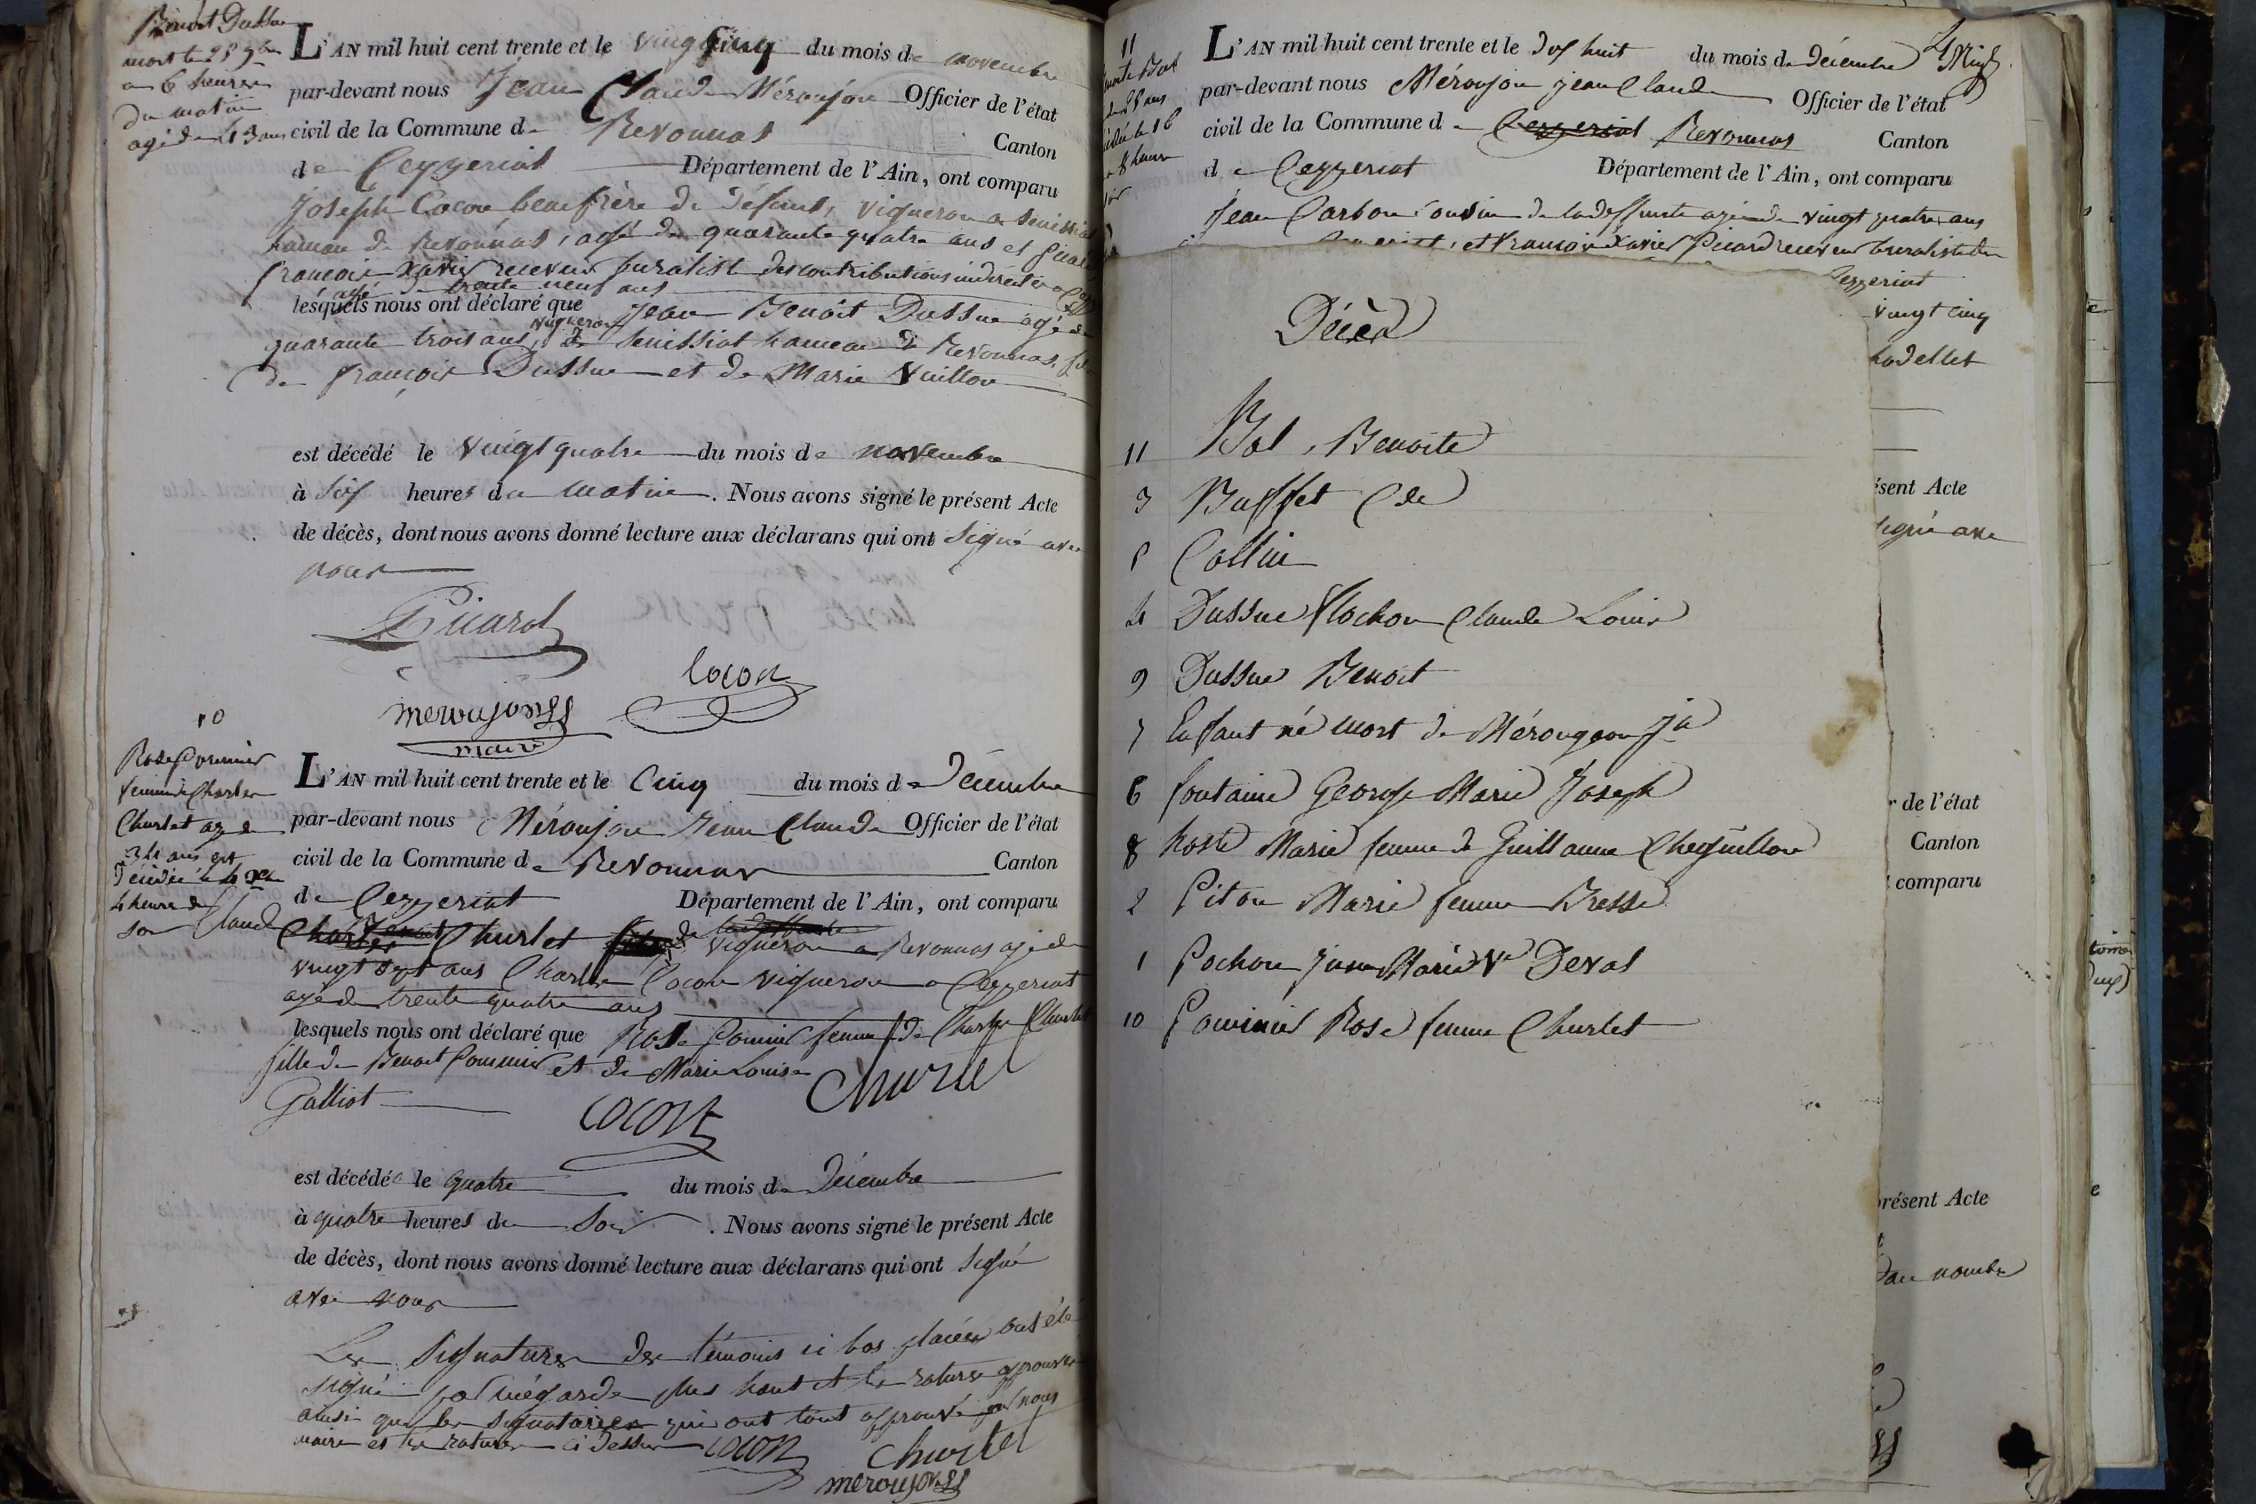 Benoit Dussue
mort le 25 9bre
a 6 heures
du matin
agé de 43 ans
L'AN mil huit cent trente et le vingt cinq du mois de novembre
par-devant nous Jean Claude Méroujon Officier de l'état
civil de la Commune de Revonnas Canton
de Ceyzeriat Département de l'Ain, ont comparu
Joseph Cocon beaufrère du défunt, vigneron a Senissiat
hameau de Revonnas, agé de quarante quatre ans et Picard
françois Xavier receveur buraliste des contributions indirectes a
agé de trente neuf ans
lesquels nous ont déclaré que Jean Benoît Dussue agé de
quarante trois ans, vigneron de Senissiat hameau de Revonnas, fils
de françois Dussue et de Marie Vuillon
est décédé le vingt quatre du mois de novembre
à six heures du matin. Nous avons signé le présent Acte
de décès, dont nous avons donné lecture aux déclarans qui ont signé avec
nous
Picard
cocon
meroujon
maire
10
Rose Pommier
femme de Charles
Churlet agée de
34 ans est
décédée le 4 Xbre
4 heures du
soir
L'AN mil huit cent trente et le Cinq du mois de Décembre
par-devant nous Méroujon Jean Claude Officier de l'état
civil de la Commune de Revonnas Canton
de Ceyzeriat Département de l'Ain, ont comparu
Claude Churlet vigneron a Revonnas agé de
vingt sept ans Charles Cocon vigneron a Ceyzeriat
agé de trente quatre ans
lesquels nous ont déclaré que Rose Pommier femme de Charles Churlet
fille de Benoit Pommier et de Marie Louise
Galliot
cocon churlet
est décédée le quatre du mois de Décembre
à quatre heures du Soir. Nous avons signé le présent Acte
de décès, dont nous avons donné lecture aux déclarans qui ont signé
avec nous
Les signatures des témoins ci bas placées ont été
signé par mégarde plus haut et les ratures approuvées
ainsi que les signataires qui ont tout approuvé par nous
maire et les ratures ci dessus cocon churlet
meroujon
11
L'AN mil huit cent trente et le dix huit du mois de Décembre
par-devant nous Méroujon jean Claude Officier de l'état
civil de la Commune de Ceyzeriat Revonnas Canton
de Ceyzeriat Département de l'Ain, ont comparu
Jean Carbon cousin de la deffunte agé de vingt quatre ans
et françois Xavier Picard receveur buraliste de
Ceyzeriat
vingt cinq
Décès
11 Bal, Benoite
3 Buffet Cde
5 Collin
4 Dussue Flochon Claude Louis
9 Dussue Benoit
7 Enfant né mort de Mérougeon jh
6 fontaine George Marie Joseph
8 hoste Marie femme de Guillaume Cheguillon
2 Piton Marie femme Bresse
1 Pochon jeanne Marie Ve Deval
10 Pommier Rose femme Churlet
ésent Acte
signé avec
r de l'état
Canton
comparu
présent Acte
au nombre